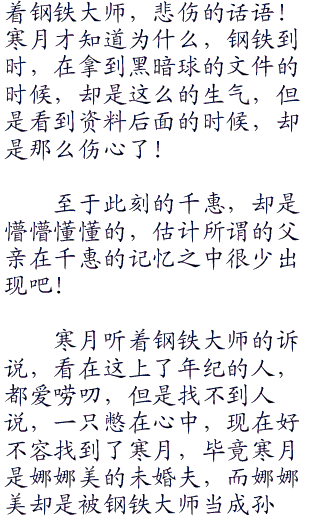 着钢铁大师，悲伤的话语！
寒月才知道为什么，钢铁到
时，在拿到黑暗球的文件的
时候，却是这么的生气，但
是看到资料后面的时候，却
是那么伤心了！
至于此刻的千惠，却是
懵懵懂懂的，估计所谓的父
亲在千惠的记忆之中很少出
现吧！
寒月听着钢铁大师的诉
说，看在这上了年纪的人，
都爱唠叨，但是找不到人
说，一只憋在心中，现在好
不容找到了寒月，毕竟寒月
是娜娜美的未婚夫，而娜娜
美却是被钢铁大师当成孙